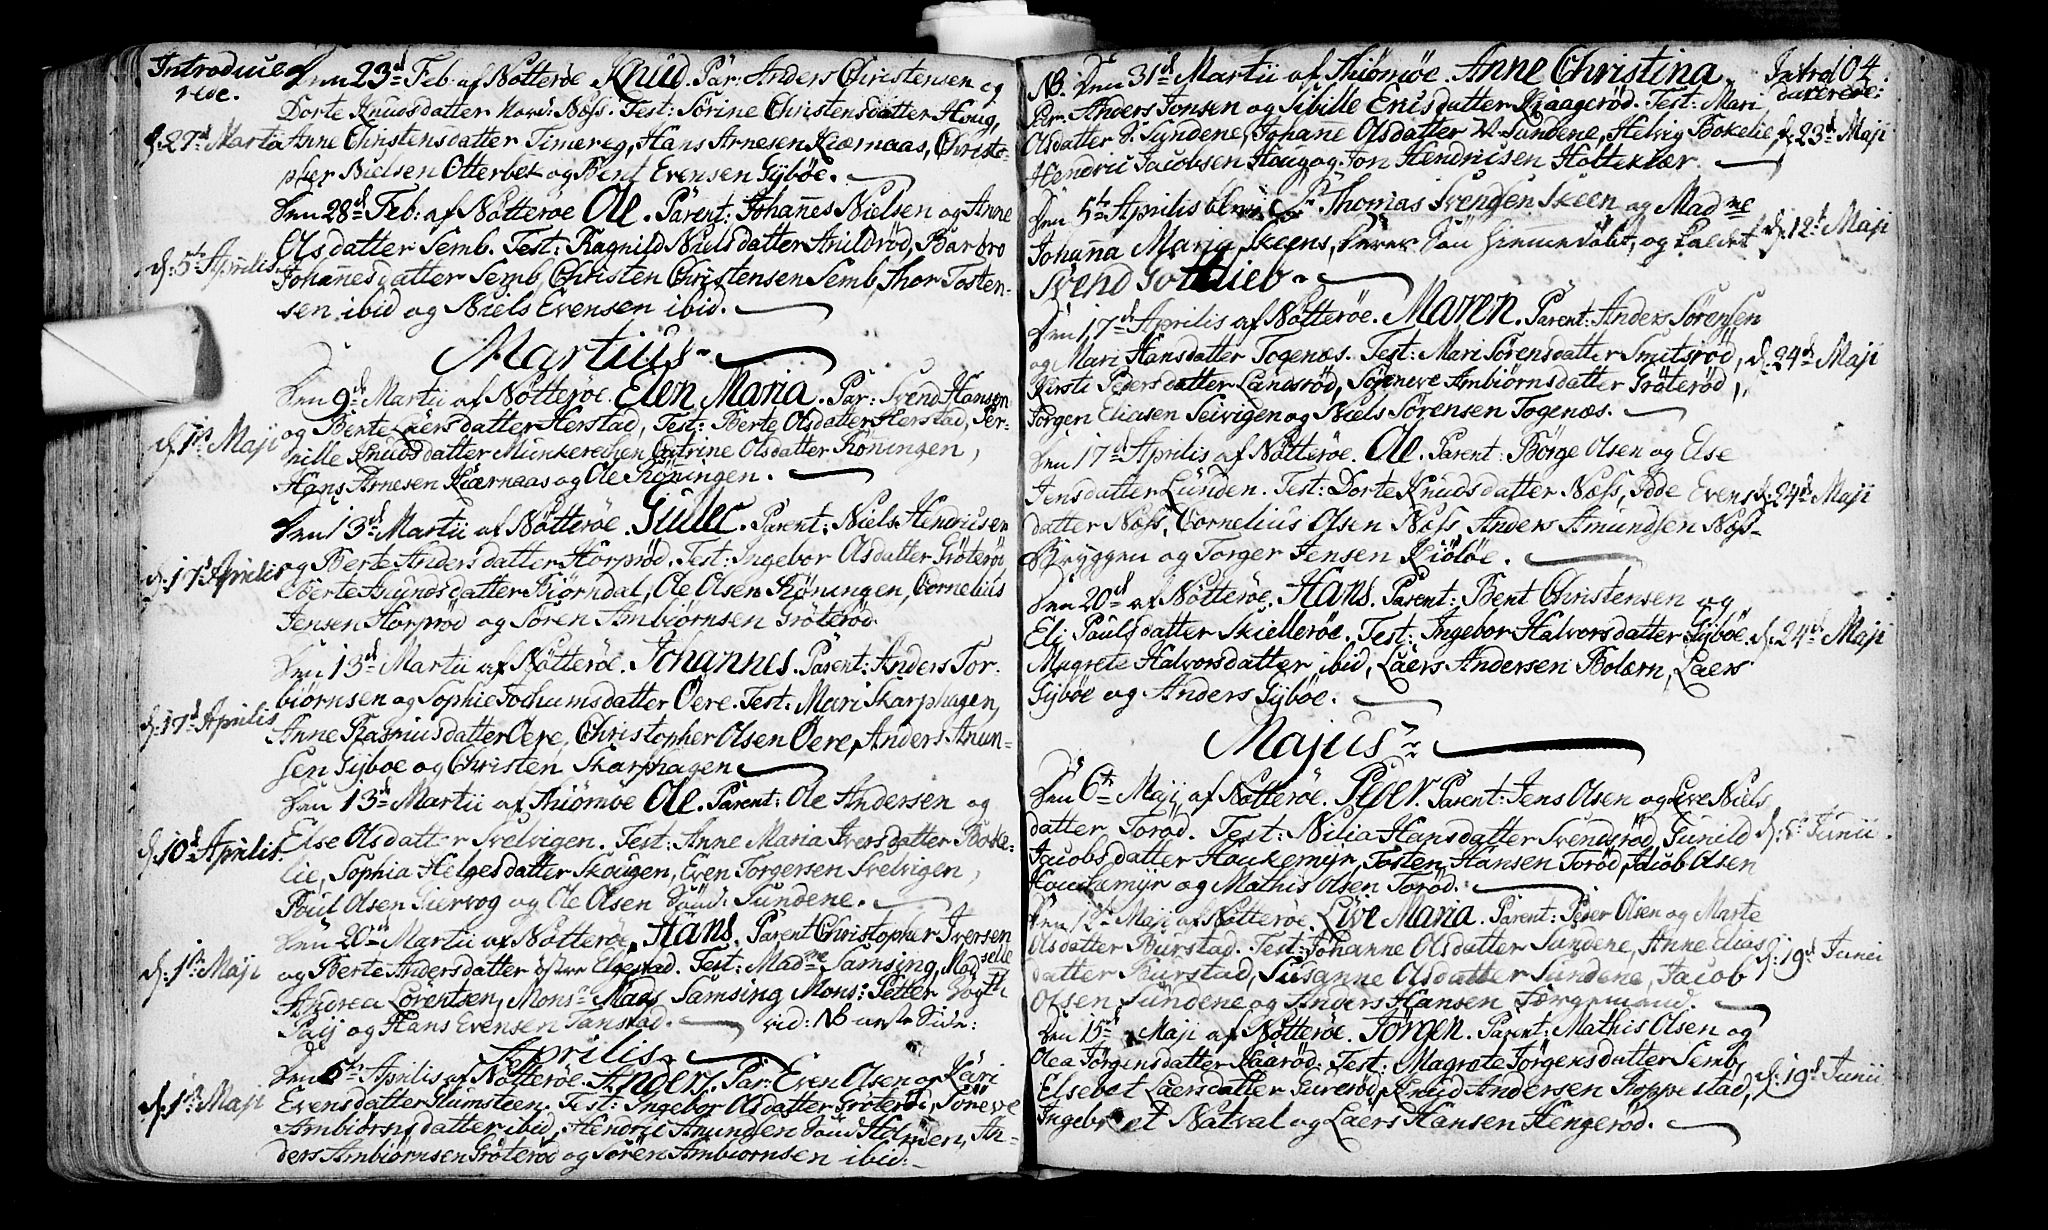 Introduce
rede.
Den 23d Feb. af Nötteröe Knud. Par: Anders Christensen og
Dorte Knudsdatter Næss. Test: Sörine Christensdatter Houg,
d. 27d Martii Anne Christensdatter Timereg, Hans Arnesen Kiærnaas, Christo-
pher Nielsen Otterbek og Bent Evensen Gÿböe.
Den 28d Feb: af Nötteröe Ole. Parent: Johannes Nielsen og Anne
Olsdatter Semb. Test: Ragnild Nielsdatter Anildröd, Barbro
d: 5t Aprilis Johannesdatter Semb, Christen Christensen Semb, Thor Tosten-
sen ibid og Niels Evensen ibid.
Martius
Den 9d Martii af Nötteröe. Elen Maria. Par: Svend Hansen
d. 1st Maji og Berte Laersdatter Herstad, Test: Berte Olsdatter Herstad, Per-
nille Knudsdatter Munkerechen Catrine Olsdatter Röningen,
Hans Arnesen Kiærnaas og Ole Röningen.
Den 13d Martii af Nötteröe. Gullec. Parent: Niels Hendricsen
d: 17d Aprilis og Berte Andersdatter Horpröd. Test: Ingebor Olsdatter Gröteröd
Berte Anundsdatter Biörndal, Ole Olsen Röningen, Cornelius
Jensen Horpröd og Sören Ambiörnsen Gröteröd.
Den 13d Martii af Nötteröe. Johannes. Parent: Anders Tor-
biornsen og Sophie Jochumsdatter Oere. Test: Mari Skarphagen,
d: 17d Aprilis Anne Rasmusdatter Oere, Christopher Olsen Oere, Anders Anun-
sen Gÿboe og Christen Skarphagen
Den 13d Martii af Thiömöe Ole. Parent: Ole Andersen og
d: 10d Aprilis. Else Olsdatter Svelvigen. Test: Anne Maria Iversdatter Boke-
lie, Sophia Helgesdatter Skougen, Even Torgersen Svelvigen,
Poul Olsen Giervog og Ole Olsen Sund: Sundene.
Den 20d Martii af Nötteröe, Hans. Parent Christopher Iversen
d: 1st Maji og Berte Andersdatter östre Elgestad. Test: Madme Samsing, Madselle
Andrea Lorentsen, Monsr Mads Samsing Mons: Petter Vogth
Paij og Hans Evensen Tanstad. vid: NB neste Side:
Aprilis
Den 5th Aprilis af Nötteröe. Anders. Par: Even Olsen og Kari
d: 1st Maji Evensdatter Rumsteen. Test: Ingebor Olsdatter Gröteröd, Söneve
Ambiörnsdatter ibid, Hendric Anundsen Sund Holmen, An-
ders Ambiörnsen Gröteröd og Sören Ambiörnsen ibid:
104
Introducerede:
NB. Den 31d Martii af Thiömöe. Anne Christina.
Par: Anders Jonsen og Sibille Ericsdatter Kraageröd. Test: Mari
Olsdatter S: Sundene, Johanne Olsdatter V. Sundene, Helvig Bokelie d: 23d Maji
Hendric Jacobsen Houg og Jon Hendricsen Holtekiær.
Den 5th Aprilis Thomas Svendsen Skeen og Madme
Johanna Maria Skeens, deres Sön hiemmedöbt, og kaldet d: 12t Maji
Svend Gottlieb
Den 17d Aprilis af Nötteröe. Maren. Parent: Anders Sörensen
og Mari Hansdatter Togenæs. Test: Mari Sörensdatter Smitsröd, d: 24d Maji
Kirsti Pedersdatter Landsröd, Söneneve Ambiörnsdatter Gröteröd,
Jörgen Eliasen Seivigen og Niels Sörensen Togenæs.
Den 17d Aprilis af Nötteröe. Ole. Parent: Börge Olsen og Else
Jensdatter Lunden. Test: Dorte Knudsdatter Næss, Jdde Evens- d: 24d Maji
datter Næss, Cornelius Olsen Næss, Anders Amundsen Næss-
Bryggen og Torger Jensen Kiölöe.
Den 20d af Nötteröe, Hans. Parent: Bent Christensen og
Eli Paulsdatter Skielleröe. Test: Ingebor Halvorsdatter Gÿböe. d: 24d Maji
Magrete Halvorsdatter ibid, Laers Andersen Bolærn, Laers
Gÿböe og Anders Gÿböe.
Majus
Den 6th Maji af Nötteröe. Peder. Parent: Jens Olsen og Live Niels
datter Toröd. Test: Nilia Hansdatter Svendsröd, Gunild Junii.
Jacobsdatter Houkemÿr, Tosten Hansen Toröd, Jacob Olsen
Houchemÿr og Mathis Olsen Toröd.
Den 12t Maji af Nötteröe. Live Maria. Parent: Peder Olsen og Marte
Olsdatter Burstad. Test: Johanne Olsdatter Sundene, Anne Elias
datter Burstad, Susanne Olsdatter Sundene, Jacob d: 19d Junii
Olsen Sundene og Anders Hansen Færgemand.
Den 15d Maji af Nötteröe. Jörgen. Parent: Mathis Olsen og
Olea Jörgensdatter Kaaröd. Test: Magrete Jörgensdatter Semb,
Elsebet Laersdatter Gureröd, Knud Andersen Roppestad, d: 19d Junii
Ingebret Natval og Laers Hansen Hengeröd.